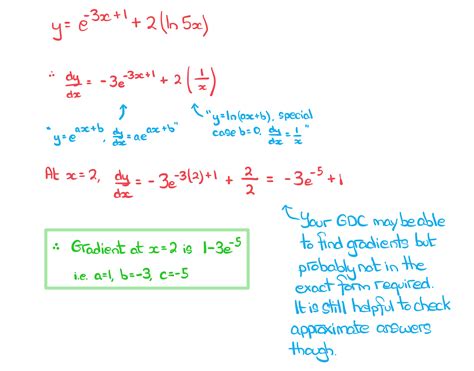 y = e^{-3x+1} + 2(ln 5x)
∴ dy/dx = -3e^{-3x+1} + 2(1/x)
"y=e^{ax+b}, dy/dx = ae^{ax+b}"
"y=ln(ax+b), special
case b=0, dy/dx = 1/x"
At x=2, dy/dx = -3e^{-3(2)+1} + 2/2 = -3e^{-5} + 1
∴ Gradient at x=2 is 1-3e^{-5}
i.e. a=1, b=-3, c=-5
Your GDC may be able
to find gradients but
probably not in the
exact form required.
It is still helpful to check
approximate answers
though.